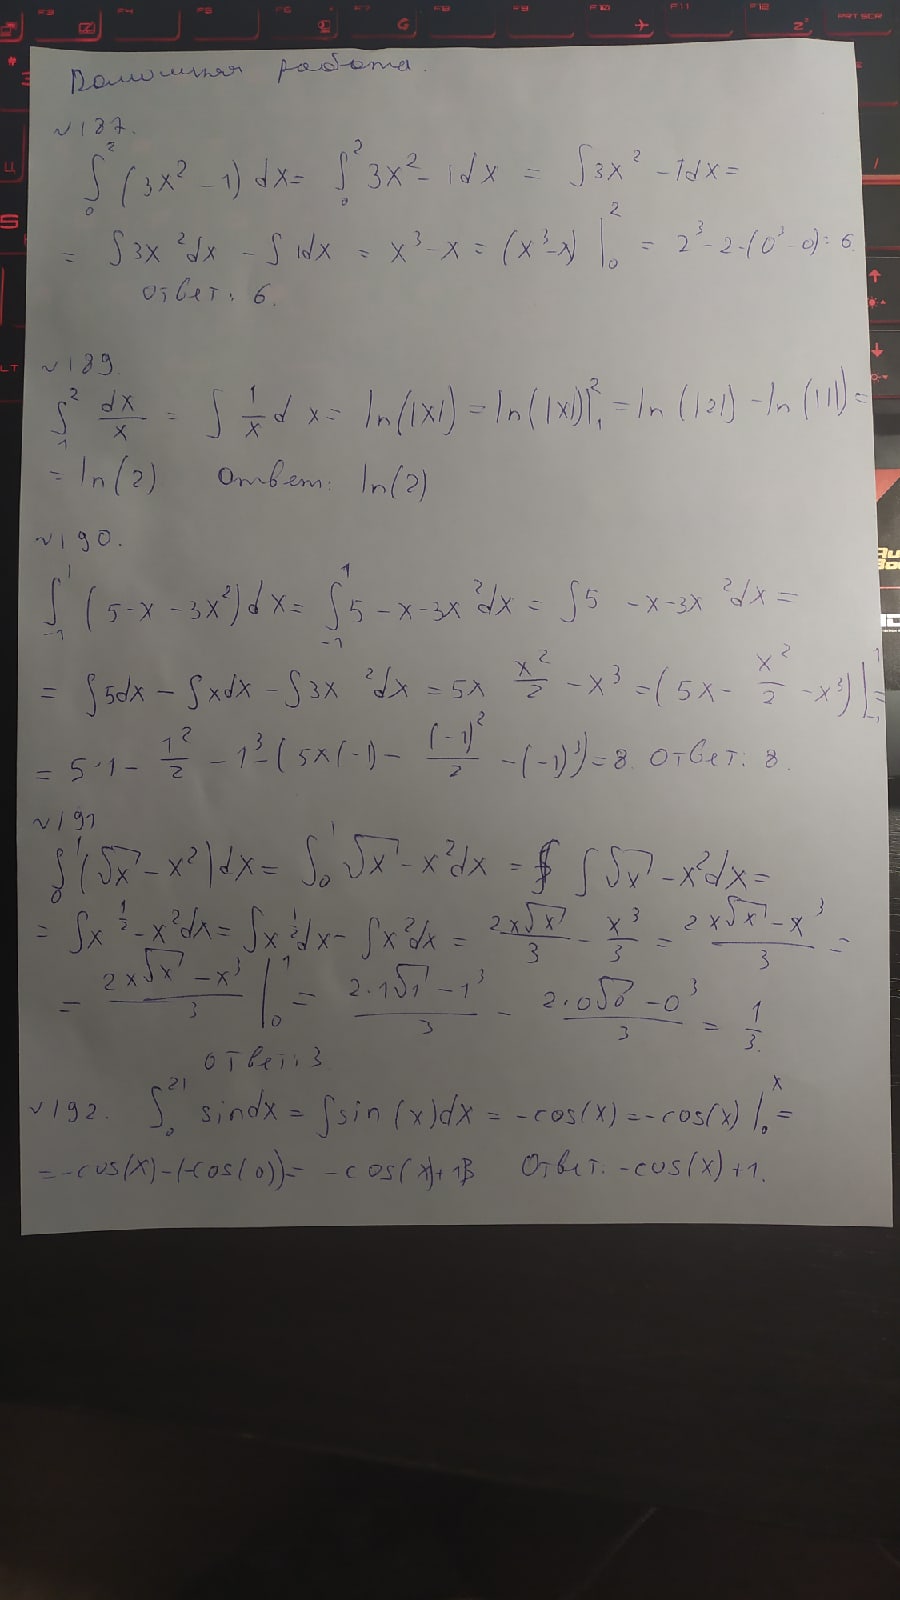 Домашняя работа.
№187.
∫₀² (3x² - 1) dx = ∫₀² 3x² - 1dx = ∫3x² - 1dx =
= ∫3x²dx - ∫1dx = x³ - x = (x³-x) |₀² = 2³ - 2 - (0³ - 0) = 6.
Ответ: 6.
№189.
∫₁² dx/x = ∫ 1/x d x = ln(|x|) = ln(|x|)|₁² = ln(|2|) - ln(|1|) =
= ln(2) Ответ: ln(2)
№190.
∫₋₁¹ (5 - x - 3x²)dx = ∫₋₁¹ 5 - x - 3x²dx = ∫5 - x - 3x²dx =
= ∫5dx - ∫xdx - ∫3x²dx = 5x x²/2 - x³ = (5x - x²/2 - x³)|₋₁¹ =
= 5·1 - 1²/2 - 1³ - (5x(-1) - (-1)²/2 - (-1)³) = 8. Ответ: 8.
№191
∫₀¹ (√x - x²)dx = ∫₀¹ √x - x²dx = ∫ √x - x²dx =
= ∫x^(1/2) - x²dx = ∫x^(1/2)dx - ∫x²dx = 2x√x/3 - x³/3 = (2x√x - x³)/3 =
= (2x√x - x³)/3 |₀¹ = (2·1√1 - 1³)/3 - (2·0√0 - 0³)/3 = 1/3.
Ответ: 3
№192. ∫₀²¹ sindx = ∫sin(x)dx = -cos(x) = -cos(x) |₀ˣ =
= -cos(x) - (-cos(0)) = -cos(x)+1 Ответ: -cos(x)+1.
F3
F4
F5
F6
F7
F8
F9
F10
F11
F12
PRT SCR